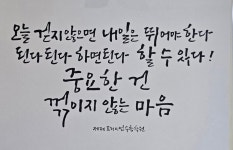 오늘 걷지않으면 내일은 뛰어야한다
된다된다 하면된다 할 수 있다!
중요한 건
꺾이지 않는 마음